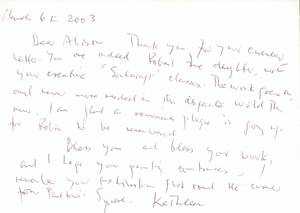 March 6th 2003
Dear Alison Thank you for your
letter. You are indeed Robin's true daughter, with
your creative "Soulscript" classes. The work goes on
and never more needed in this desperate world than
now. I am glad a memorial plaque is going up
for Robin to be remembered.
Bless you and bless your work,
and I hope your painting continues, I
remember your exhibition just round the corner
from Paultons Square. Kathleen